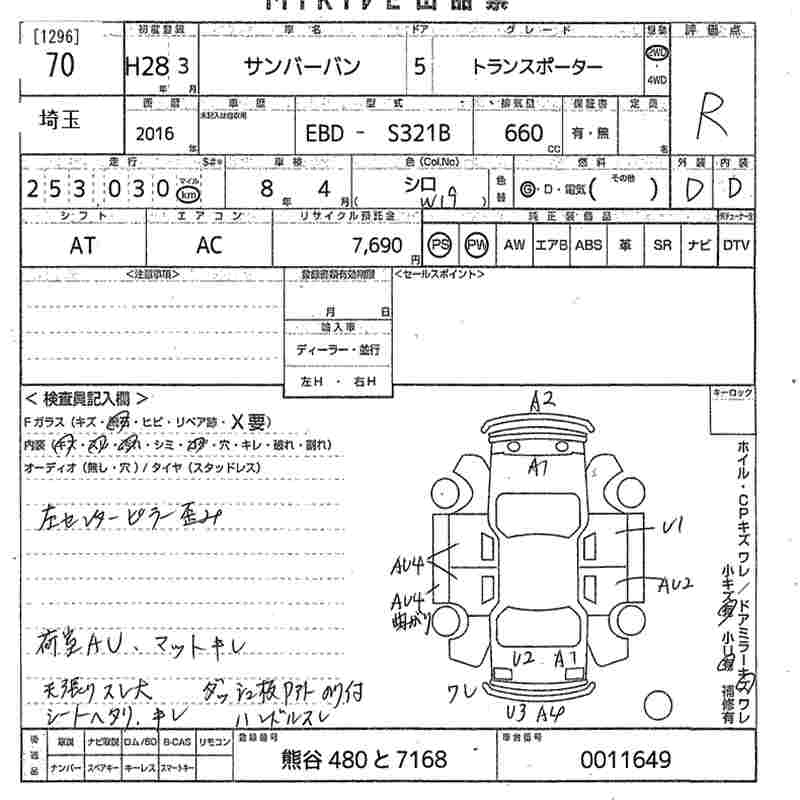 [1296]
70
初度登録
H28 3
年 月
車名
サンバーバン
ドア
5
グレード
トランスポーター
駆動
2WD
・
4WD
評価点
R
埼玉
西暦
2016
年
車歴
未記入は自家用
型式
EBD - S321B
排気量
660
CC
保証書
有・無
定員
名
走行
253 030
マイル
km
車検
8年 4月
色(Col.No)
シロ
( W19 )
色替
燃料
G・D・電気( その他 )
外装
D
内装
D
シフト
AT
エアコン
AC
リサイクル預託金
7,690
円
純正装備品
PS PW AW エアB ABS 革 SR ナビ DTV
<注意事項>
登録書類有効期限
月 日
輸入車
ディーラー・並行
左H ・ 右H
<セールスポイント>
< 検査員記入欄 >
Fガラス(キズ・ ・ヒビ・リペア跡・X要)
内装( ・シミ・ ・穴・キレ・破れ・割れ)
オーディオ(無し・穴)/タイヤ(スタッドレス)
左センターピラー歪み
荷室AU、マットキレ
天張りスレ大 ダッシュ板 のり付
シートヘタリ、キレ ハンドルスレ
キーロック
A2
A1
U1
AU4
AU2
AU4
曲がり
U2 A1
ワレ
U3 A4
ホイル・CPキズワレ/ドアミラーキズワレ
小キズ 小凹 補修有
後送品
取説 ナビ取説 ロム/SD B-CAS リモコン
ナンバー スペアキー キーレス スマートキー
登録番号
熊谷 480 と 7168
車台番号
0011649